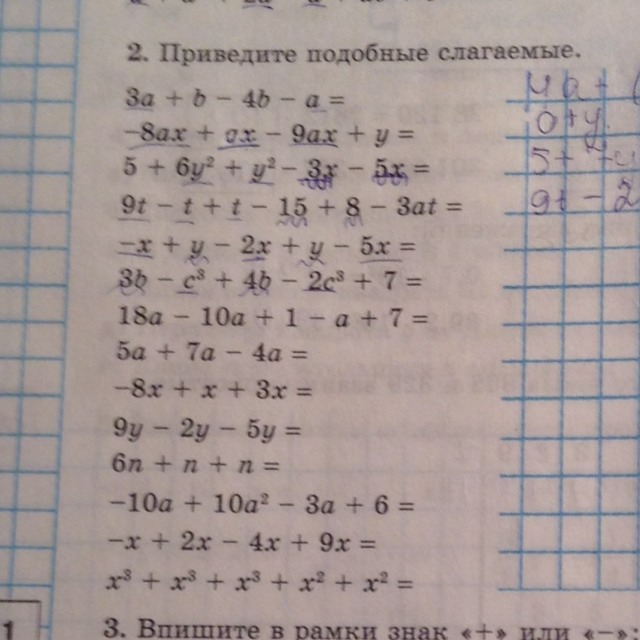 2. Приведите подобные слагаемые.
3a + b − 4b − a =
−8ax + ax − 9ax + y =
5 + 6y² + y² − 3x − 5x =
9t − t + t − 15 + 8 − 3at =
−x + y − 2x + y − 5x =
3b − c³ + 4b − 2c³ + 7 =
18a − 10a + 1 − a + 7 =
5a + 7a − 4a =
−8x + x + 3x =
9y − 2y − 5y =
6n + n + n =
−10a + 10a² − 3a + 6 =
−x + 2x − 4x + 9x =
x³ + x³ + x³ + x² + x² =
3. Впишите в рамки знак «+» или «−»
1